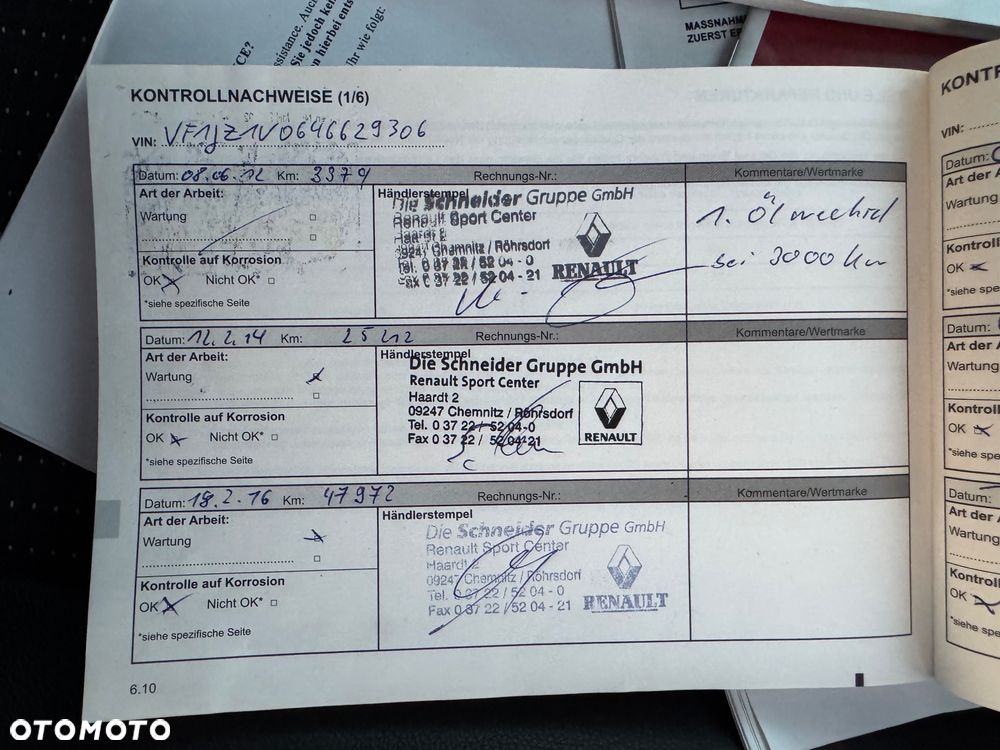 CE?
sistance. Auc
Sie jedoch ken
n hierbei ents
Ihr wie folgt:
MASSNAHM
ZUERST ER
KONTROLLNACHWEISE (1/6)
VIN: VF1JZ1V0646629306
Datum: 08.06.12 Km: 3379 Rechnungs-Nr.: Kommentare/Wertmarke
Art der Arbeit:
Wartung
Kontrolle auf Korrosion
OK Nicht OK*
*siehe spezifische Seite
Händlerstempel
Die Schneider Gruppe GmbH
Renault Sport Center
Haardt 2
09247 Chemnitz / Röhrsdorf
Tel. 0 37 22 / 52 04 - 0
Fax 0 37 22 / 52 04 - 21
RENAULT
1. Ölwechsel
bei 3000 Km
Datum: 12.2.14 Km: 25 Rechnungs-Nr.: Kommentare/Wertmarke
Art der Arbeit:
Wartung
Kontrolle auf Korrosion
OK Nicht OK*
*siehe spezifische Seite
Händlerstempel
Die Schneider Gruppe GmbH
Renault Sport Center
Haardt 2
09247 Chemnitz / Röhrsdorf
Tel. 0 37 22 / 52 04-0
Fax 0 37 22 / 52 04-21
RENAULT
Datum: 18.2.16 Km: 47972 Rechnungs-Nr.: Kommentare/Wertmarke
Art der Arbeit:
Wartung
Kontrolle auf Korrosion
OK Nicht OK*
*siehe spezifische Seite
Händlerstempel
Die Schneider Gruppe GmbH
Renault Sport Center
Haardt 2
09247 Chemnitz / Röhrsdorf
Tel. 0 37 22 / 52 04 - 0
Fax 0 37 22 / 52 04 - 21
RENAULT
6.10
KONTR
VIN:
Datum:
Art der A
Wartung
Kontroll
OK
*siehe spe
Datum:
Art der A
Wartung
Kontroll
OK
*siehe sp
Datum:
Art der
Wartung
Kontrol
OK
*siehe sp
OTOMOTO